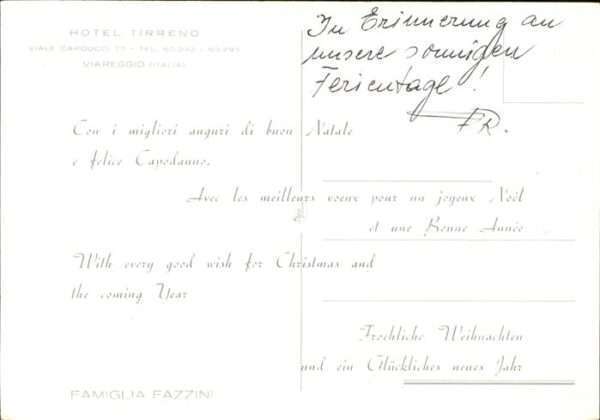 HOTEL TIRRENO
VIALE CARDUCCI
VIAREGGIO (ITALIA)
In Erinnerung an
unsere sonnigen
Ferientage!
FR.
Con i migliori auguri di buon Natale
e felice Capodanno.
Avec les meilleurs voeux pour un joyeux Noël
et une Bonne Année
With every good wish for Christmas and
the coming Year
Froehliche Weihnachten
und ein Glückliches neues Jahr
FAMIGLIA FAZZINI